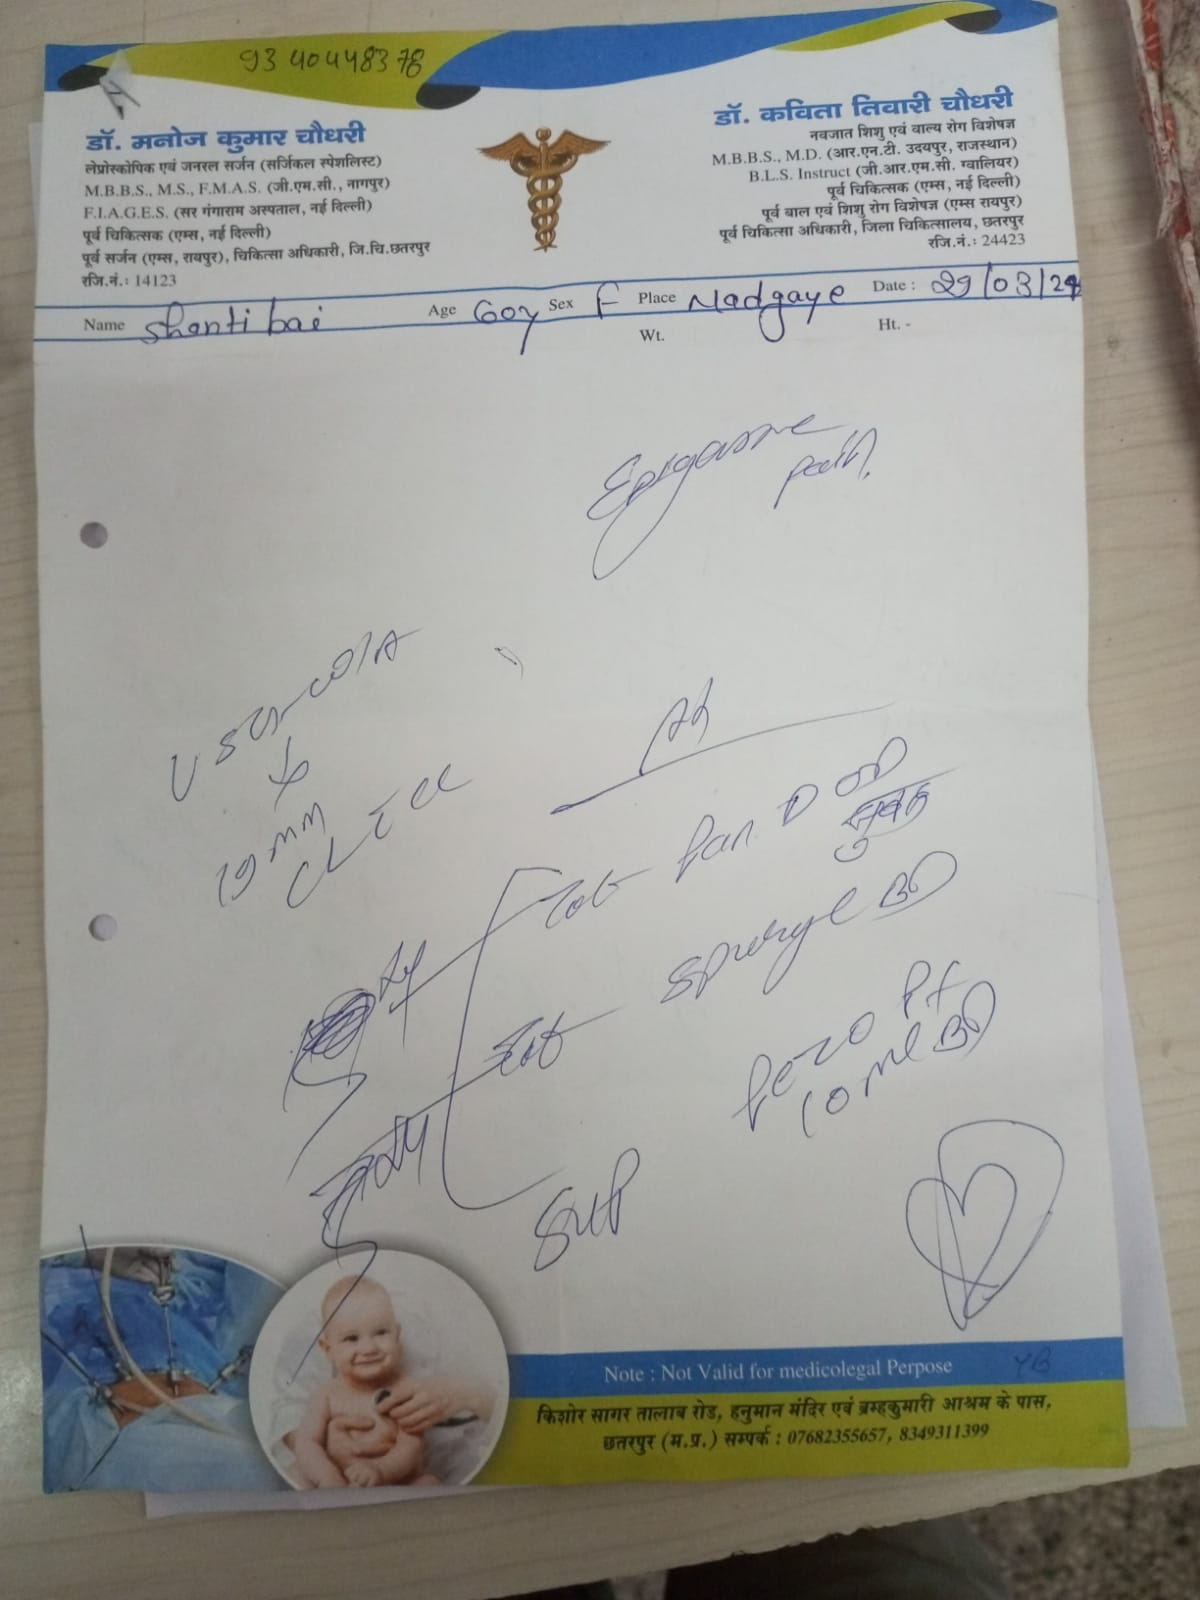 9340448378
डॉ. मनोज कुमार चौधरी
लेप्रोस्कोपिक एवं जनरल सर्जन (सर्जिकल स्पेशलिस्ट)
M.B.B.S., M.S., F.M.A.S. (जी.एम.सी., नागपुर)
F.I.A.G.E.S. (सर गंगाराम अस्पताल, नई दिल्ली)
पूर्व चिकित्सक (एम्स, नई दिल्ली)
पूर्व सर्जन (एम्स, रायपुर), चिकित्सा अधिकारी, जि.चि.छतरपुर
रजि.नं.: 14123
डॉ. कविता तिवारी चौधरी
नवजात शिशु एवं बाल्य रोग विशेषज्ञ
M.B.B.S., M.D. (आर.एन.टी. उदयपुर, राजस्थान)
B.L.S. Instruct (जी.आर.एम.सी. ग्वालियर)
पूर्व चिकित्सक (एम्स, नई दिल्ली)
पूर्व बाल एवं शिशु रोग विशेषज्ञ (एम्स रायपुर)
पूर्व चिकित्सा अधिकारी, जिला चिकित्सालय, छतरपुर
रजि.नं.: 24423
Name Shanti bai Age 60y Sex F Place Nadgaye Date : 29/03/24
Wt. Ht. -
pain.
19 mm
Tab Pan D OD
सुबह
Tab BD
Syp
10 ml BD
Note : Not Valid for medicolegal Perpose YB
किशोर सागर तालाब रोड, हनुमान मंदिर एवं ब्रम्हकुमारी आश्रम के पास,
छतरपुर (म.प्र.) सम्पर्क : 07682355657, 8349311399